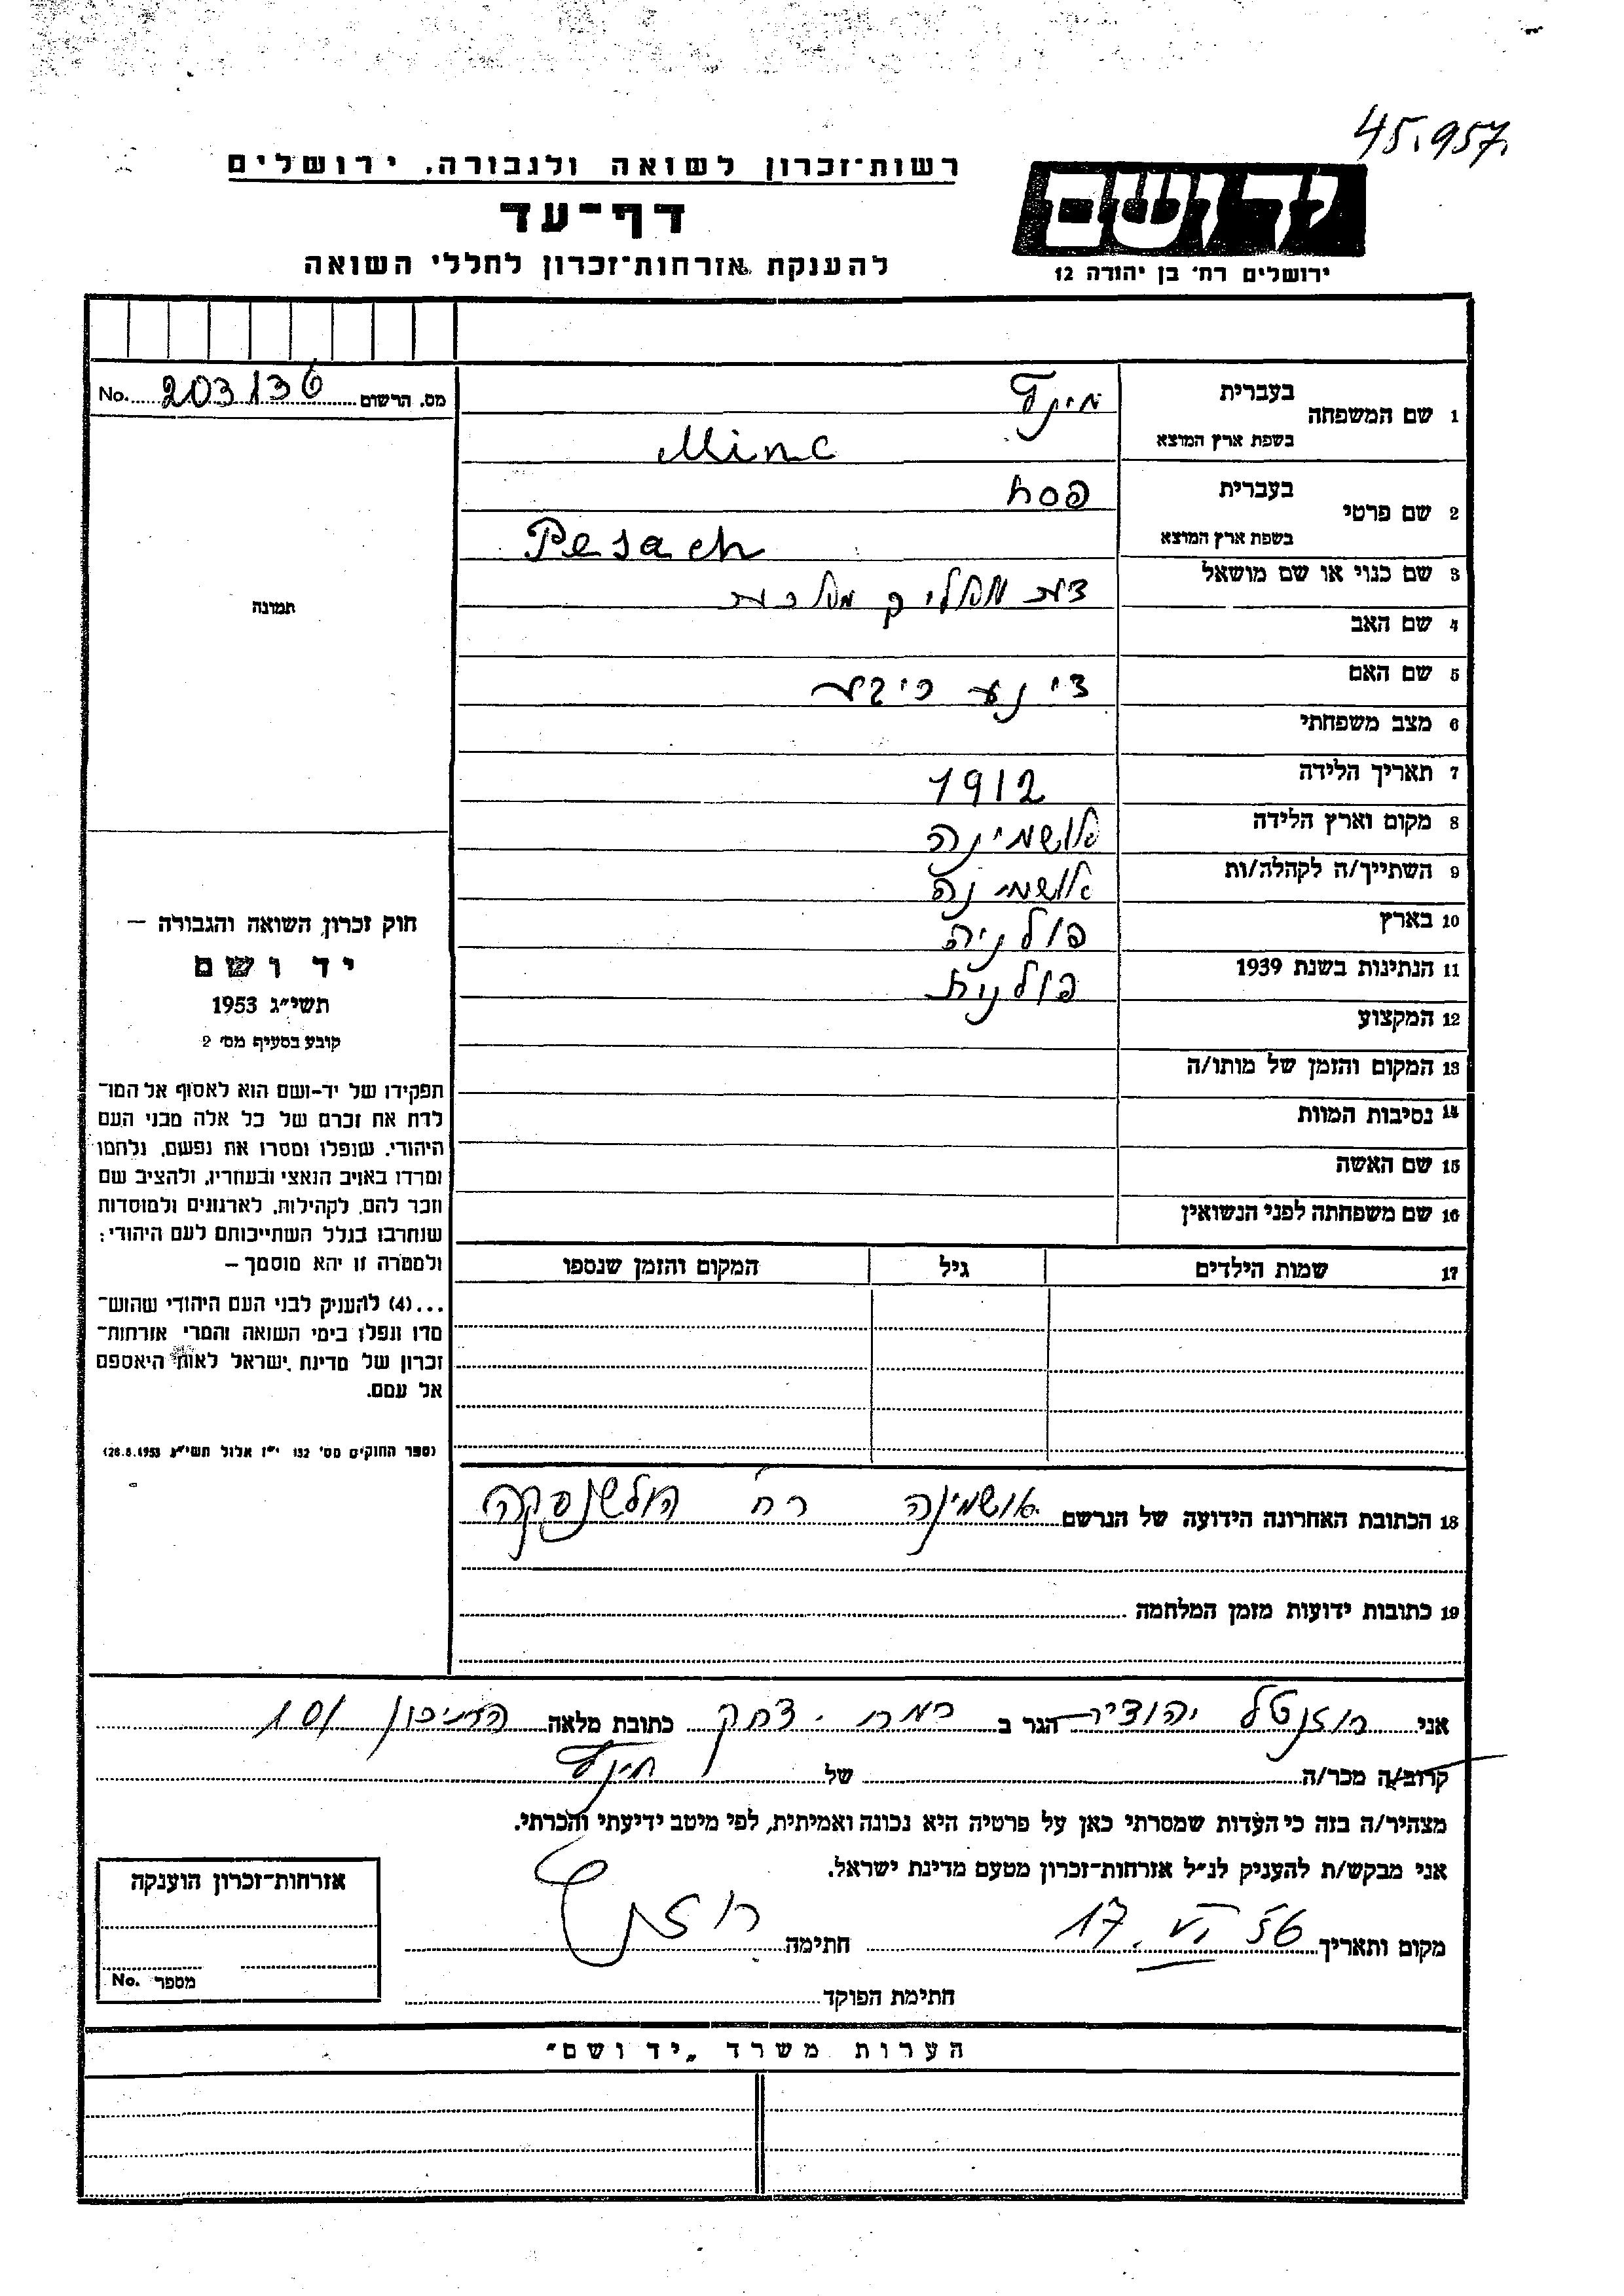 45.957.
רשות־זכרון לשואה ולגבורה, ירושלים
יד ושם
דף־עד
להענקת אזרחות־זכרון לחללי השואה
ירושלים רח׳ בן יהודה 12
מס. הרשום 203136 No.
1 שם המשפחה
בעברית מינץ
בשפת ארץ המוצא Minc
2 שם פרטי
בעברית פסח
בשפת ארץ המוצא Pesach
3 שם כנוי או שם מושאל
4 שם האב
5 שם האם
6 מצב משפחתי
7 תאריך הלידה 1912
8 מקום וארץ הלידה אושמינה
9 השתייך/ה לקהלה/ות אושמינה
10 בארץ פולניה
11 הנתינות בשנת 1939 פולנית
12 המקצוע
13 המקום והזמן של מותו/ה
14 נסיבות המוות
15 שם האשה
16 שם משפחתה לפני הנשואין
17 שמות הילדים גיל המקום והזמן שנספו
תמונה
חוק זכרון השואה והגבורה —
יד ושם
תשי״ג 1953
קובע בסעיף מס׳ 2
תפקידו של יד-ושם הוא לאסוף אל המו־
לדת את זכרם של כל אלה מבני העם
היהודי, שנפלו ומסרו את נפשם, נלחמו
ומרדו באויב הנאצי ובעוזריו, ולהציב שם
וזכר להם, לקהילות, לארגונים ולמוסדות
שנחרבו בגלל השתייכותם לעם היהודי;
ולמטרה זו יהא מוסמך —
...(4) להעניק לבני העם היהודי שהוש־
מדו ונפלו בימי השואה והמרי אזרחות־
זכרון של מדינת ישראל לאות היאספם
אל עמם.
(ספר החוקים מס׳ 132 י״ז אלול תשי״ג 28.8.1953)
18 הכתובת האחרונה הידועה של הנרשם אושמינה רח הולשנסקה
19 כתובות ידועות מזמן המלחמה
אני רוזנטל יהודית הגר ב רמת יצחק כתובת מלאה 101
קרוב/ה מכר/ה של מינץ
מצהיר/ה בזה כי העדות שמסרתי כאן על פרטיה היא נכונה ואמיתית, לפי מיטב ידיעתי והכרתי.
אני מבקש/ת להעניק לנ״ל אזרחות־זכרון מטעם מדינת ישראל.
מקום ותאריך 17. VI 56 חתימה
חתימת הפוקד
אזרחות־זכרון הוענקה
מספר No.
הערות משרד „יד ושם״